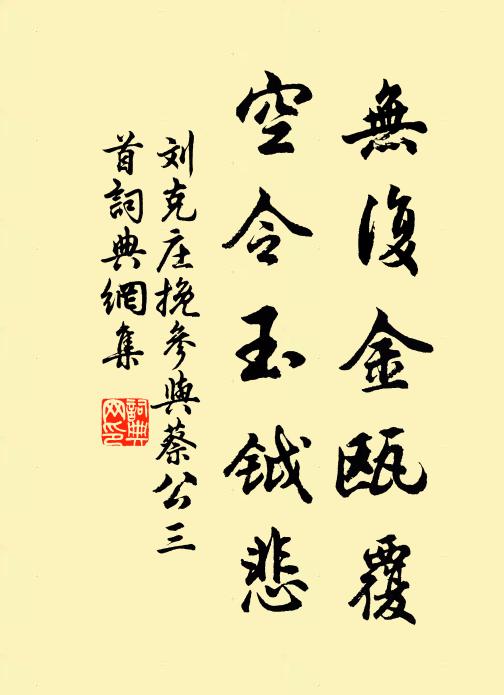 無復金甌覆
空令玉鉞悲
刘克庄挽參與蔡公三
首詞典網集
詞典
网印